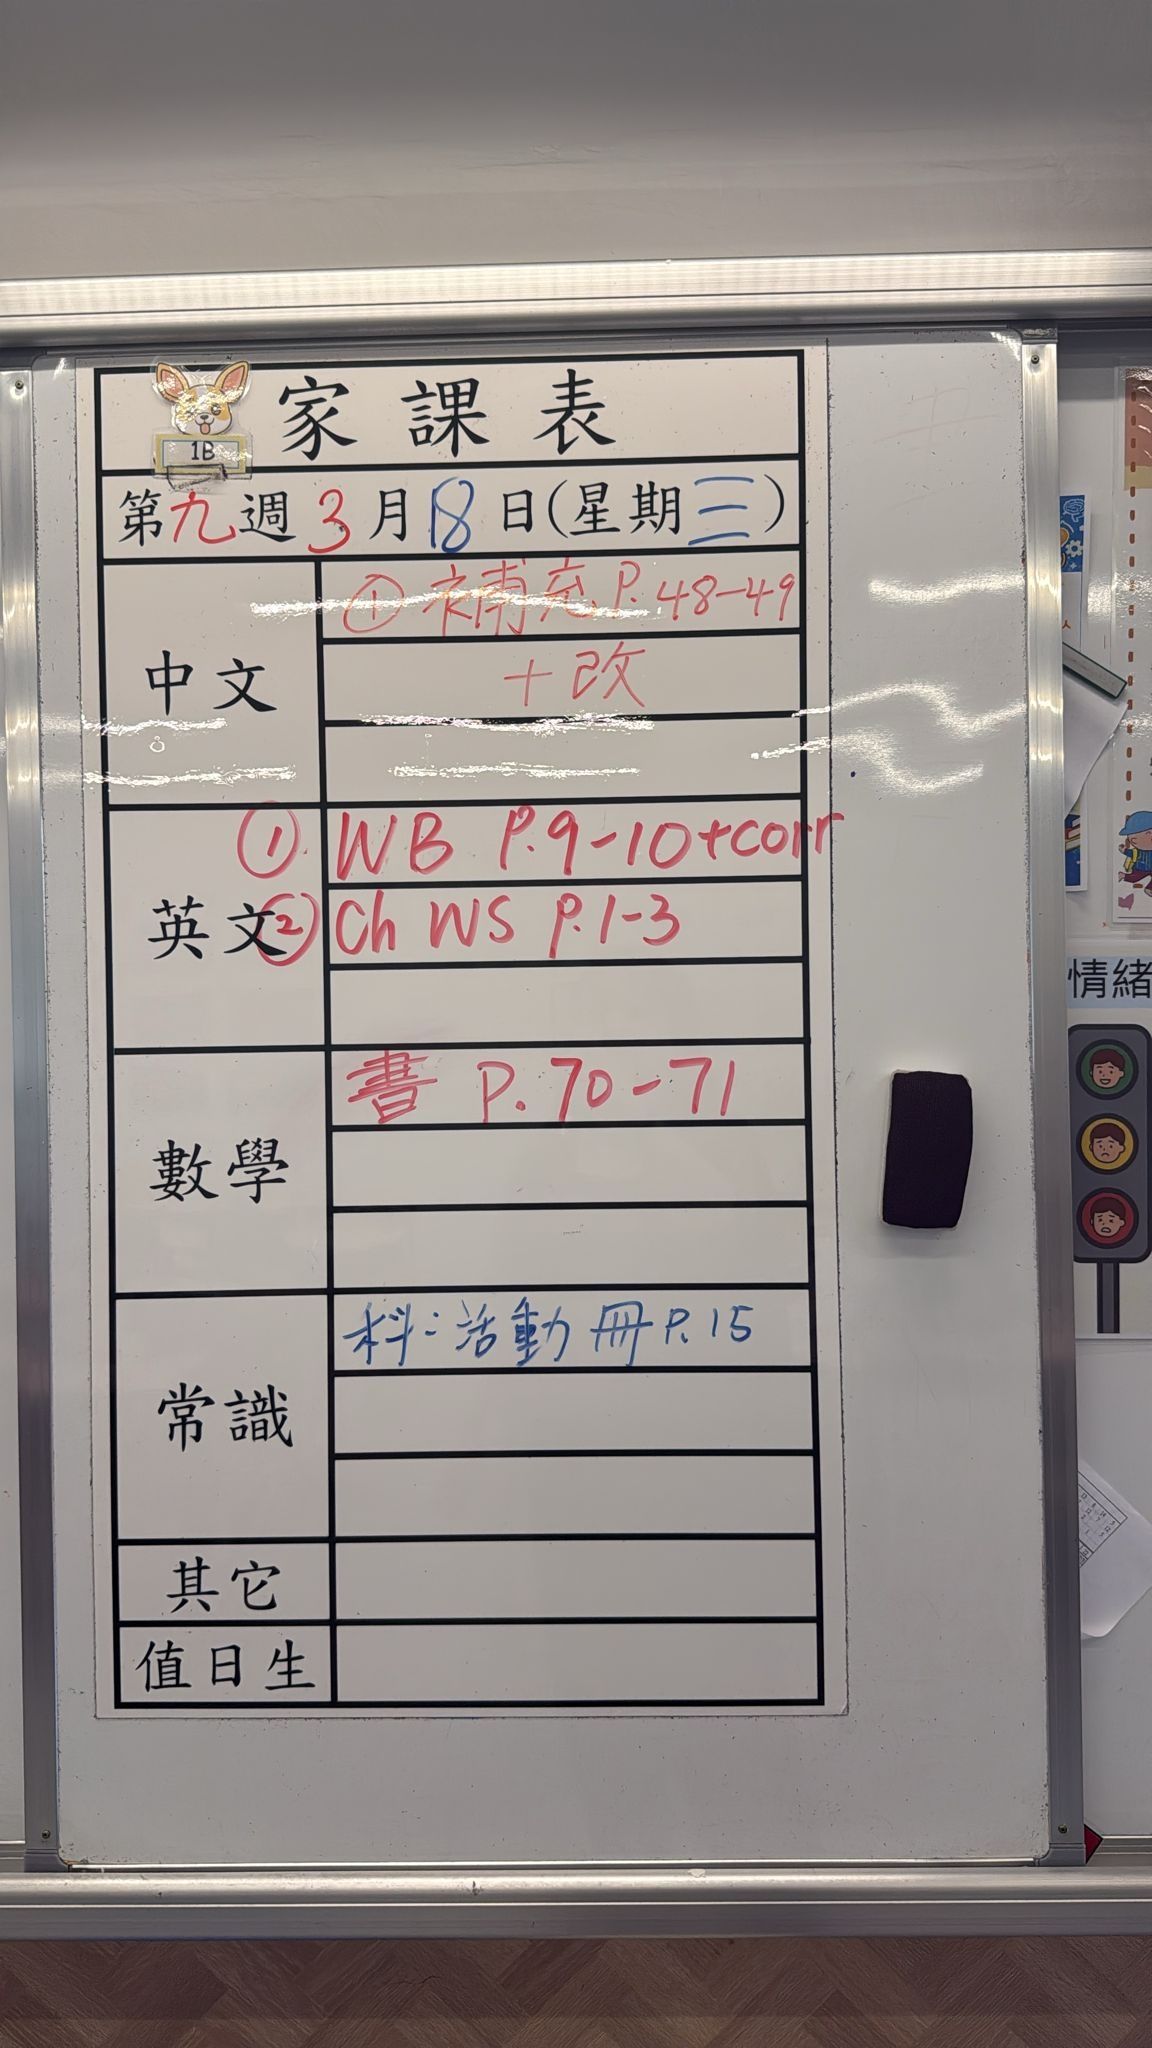 家課表
1B
第九週3月18日(星期三)
中文
① 補充 P.48-49
+改
英文
① WB P.9-10+corr
② Ch WS P.1-3
數學
書 P.70-71
常識
科:活動冊 P.15
其它
值日生
情緒